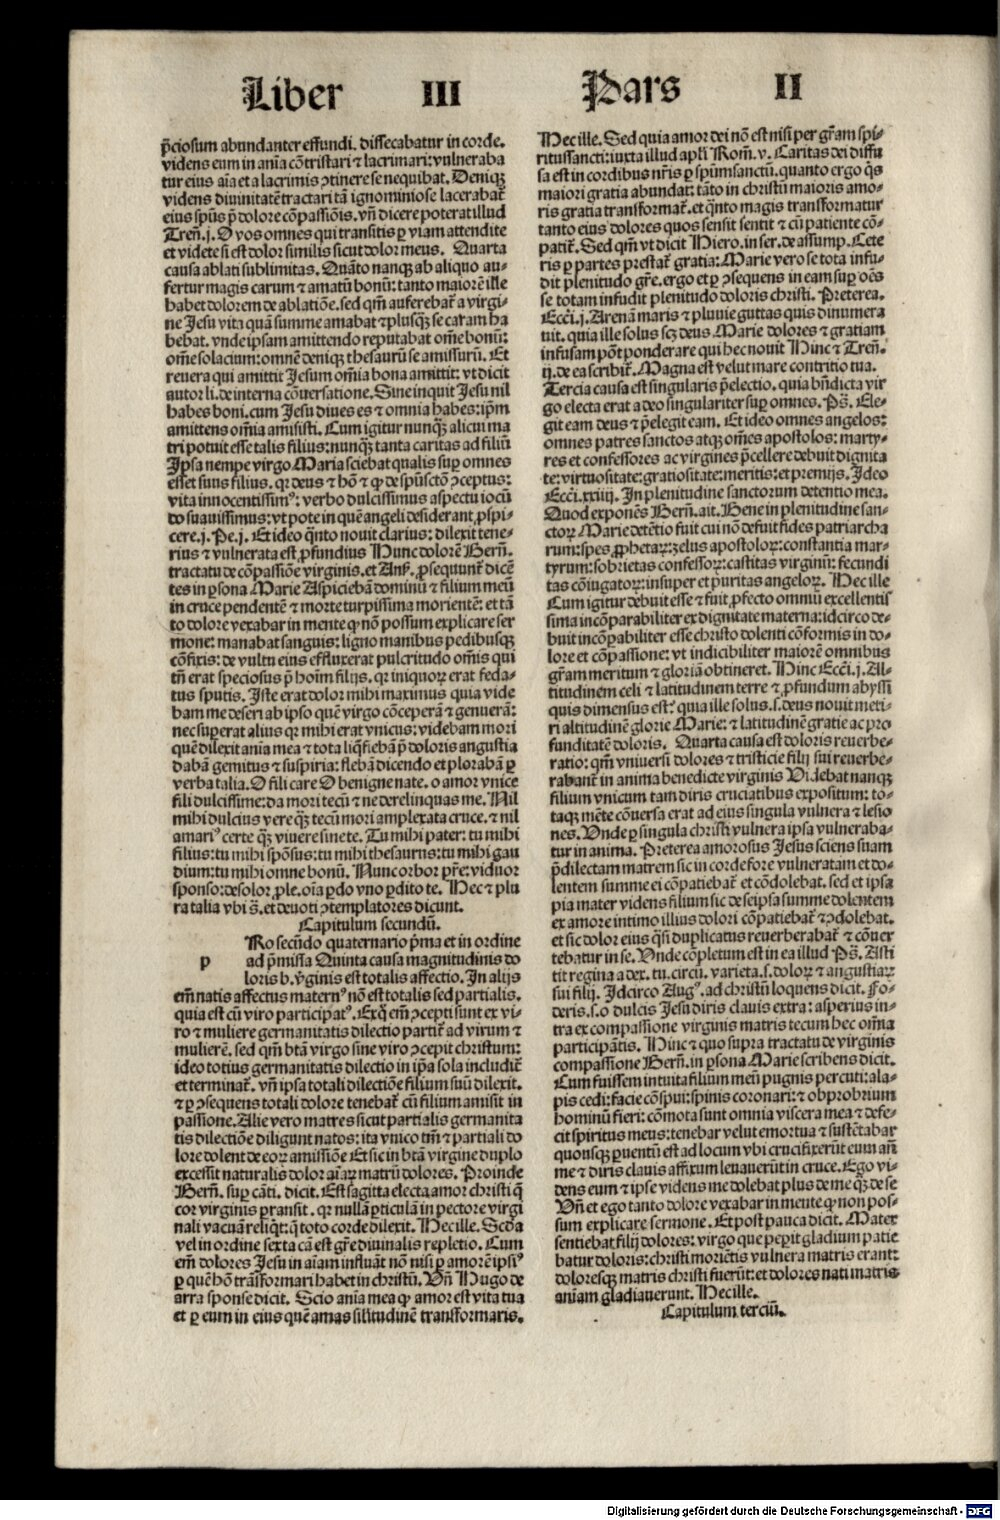 Liber III Pars II
p̄ciosum abundanter effundi. dissecabatur in corde.
videns eum in aīa cōtristari ⁊ lacrimari: vulneraba
tur eius aīa et a lacrimis ꝯtinere se nequibat. Deniqꝫ
videns diuinitatē tractari tā ignominiose lacerabať
eius spūs p̄ dolore cōpassiōis. vñ dicere poterat illud
Treñ. j. O vos omnes qui transitis ꝑ viam attendite
et videte si est dolor similis sicut dolor meus. Quarta
causa ablati sublimitas. Quāto nanqꝫ ab aliquo au⸗
fertur magis carum ⁊ amatū bonū: tanto maiorē ille
habet dolorem de ablatiōe. sed qm̄ auferebať a virgi⸗
ne Jesu vita quā summe amabat ⁊ plusqꝫ se caram ha
bebat. vnde ipsam amittendo reputabat om̄e bonū:
om̄e solacium: omnē deniqꝫ thesaurū se amissurū. Et
reuera qui amittit Jesum om̄ia bona amittit: vt dicit
autor li. de interna cōuersatione. Sine inquit Jesu nil
habes boni. cum Jesu diues es ⁊ omnia habes: ip̄m
amittens om̄ia amisisti. Cum igitur nunqꝫ alicui ma
tri potuit esse talis filius: nunqꝫ tanta caritas ad filiū
Ip̄sa nempe virgo Maria sciebat qualis suꝑ omnes
esset suus filius. qr deus ⁊ hō ⁊ ꝙ de spūsctō ꝯceptus:
vita innocentissimꝰ: verbo dulcissimus aspectu iocū
do suauissimus: vt pote in quē angeli desiderant ꝓspi⸗
cere. j. Pe. j. Et ideo q̄nto nouit clarius: dilexit tene⸗
rius ⁊ vulnerata est ꝓfundius Hunc dolorē Berñ.
tractatu de cōpassiōe virginis. et Anſ. ꝓsequunť dicē
tes in ꝑsona Marie Aspiciebā dominū ⁊ filium meū
in cruce pendentē ⁊ morte turpissima morientē: et tā
to dolore vexabar in mente ꝙ nō possum explicare ser
mone: manabat sanguis: ligno manibus pedibusqꝫ
cōfixis: de vultu eius effluxerat pulcritudo om̄is qui
tñ erat speciosus p̄ hoīm filijs. qr iniquoꝝ erat feda⸗
tus sputis. Iste erat dolor mihi maximus quia vide
bam me deseri ab ipso quē virgo cōceperā ⁊ genuerā:
nec superat alius qr mihi erat vnicus: videbam mori
quē dilexit anīa mea ⁊ tota liq̄fiebā p̄ doloris angustia
dabā gemitus ⁊ suspiria: flebā dicendo et plorabā ꝑ
verba talia. O fili care O benigne nate. o amor vnice
fili dulcissime: da mori tecū ⁊ ne derelinquas me. Nil
mihi dulcius vere qꝫ tecū mori amplexata cruce. ⁊ nil
amariꝰ certe qꝫ viuere sine te. Tu mihi pater: tu mihi
filius: tu mihi spōsus: tu mihi thesaurus: tu mihi gau
dium: tu mihi omne bonū. Nunc orbor pr̄e: viduor
sponso: desolor ꝓle. oīa ꝑdo vno ꝑdito te. Hec ⁊ plu
ra talia vbi s̄. et deuoti ꝯtemplatores dicunt.
Capitulum secundū.
p Ro secūdo quaternario p̄ma et in ordine
ad p̄missa Quinta causa magnitudinis do
loris b. ṽginis est totalis affectio. In alijs
em̄ natis affectus maternꝰ nō est totalis sed partialis.
quia est cū viro participatꝰ. Ex q̄ em̄ ꝯcepti sunt ex vi⸗
ro ⁊ muliere germanitatis dilectio partiť ad virum ⁊
mulierē. sed qm̄ btā virgo sine viro ꝯcepit christum:
ideo totius germanitatis dilectio in ip̄a sola includiť
et terminať. vñ ipsa totali dilectiōe filium suū dilexit.
⁊ ꝑ ꝯsequens totali dolore tenebať cū filium amisit in
passione. Alie vero matres sicut partialis germanita
tis dilectiōe diligunt natos: ita vnico tm̄ ⁊ partiali do
lore dolent de eoꝝ amissiōe Et sic in btā virgine duplo
excessit naturalis dolor aīaꝝ matrū dolores. Proinde
Berñ. suꝑ cāti. dicit. Est sagitta electa amor christi q̄
cor virginis ꝑransit. qr nullā ꝑticulā in pectore virgi
nali vacuā reliq̄t: q̄ toto corde dilexit. Hec ille. Scd̄a
vel in ordine sexta cā est gr̄e diuinalis repletio. Cum
em̄ dolores Jesu in aīam influāt nō nisi ꝑ amorē ipsiꝰ
ꝑ quē hō trāsformari habet in christū. Vñ Hugo de
arra sponse dicit. Scio anīa mea ꝙ amor est vita tua
et ꝑ eum in eius quē amas sił̄itudinē transformaris.
Hec ille. Sed quia amor dei nō est nisi per gr̄am spi⸗
ritussancti: iuxta illud apl̄i Rom̄. v. Caritas dei diffu
sa est in cordibus nr̄is ꝑ spūmsanctū. quanto ergo q̄s
maiori gratia abundat: tāto in christū maioris amo⸗
ris gratia transformať. et q̄nto magis transformatur
tanto eius dolores quos sensit sentit ⁊ cū patiente cō⸗
patiť. Sed qm̄ vt dicit Hiero. in ser. de assump. Cete
ris ꝑ partes prestať gratia: Marie vero se tota infu⸗
dit plenitudo gr̄e. ergo et ꝑ ꝯsequens in eam suꝑ oēs
se totam infudit plenitudo doloris christi. Preterea.
Ecci. j. Arenā maris ⁊ pluuie guttas quis dinumera
uit. quia ille solus scꝫ deus Marie dolores ⁊ gratiam
infusam pōt ponderare qui hec nouit Hinc ⁊ Treñ.
ij. de ea scribiť. Magna est velut mare contritio tua.
Tercia causa est singularis p̄electio. quia bn̄dicta vir
go electa erat a deo singulariter suꝑ omnes. Ps̄. Ele⸗
git eam deus ⁊ p̄elegit eam. Et ideo omnes angelos:
omnes patres sanctos atqꝫ om̄es apostolos: marty⸗
res et confessores ac virgines p̄cellere debuit dignita
te: virtuositate: gratiositate: meritis: et premijs. Ideo
Ecci. xxiiij. In plenitudine sanctorum detentio mea.
Quod exponēs Berñ. ait. Bene in plenitudine san⸗
ctoꝝ Marie detētio fuit cui nō defuit fides patriarcha
rum: spes ꝓphetaꝝ: zelus apostoloꝝ: constantia mar⸗
tyrum: sobrietas confessoꝝ: castitas virginū: fecundi
tas cōiugatoꝝ: insuper et puritas angeloꝝ. Hec ille
Cum igitur debuit esse ⁊ fuit ꝓfecto omniū excellentis
sima incōparabiliter ex dignitate materna: idcirco de⸗
buit incōparabiliter esse christo dolenti cōformis in do⸗
lore et cōpassione: vt indicibiliter maiorē omnibus
gr̄am meritum ⁊ gloriā obtineret. Hinc Ecci. j. Al⸗
titudinem celi ⁊ latitudinem terre ⁊ ꝓfundum abyssi
quis dimensus est: quia ille solus .s. deus nouit meti⸗
ri altitudinē glorie Marie: ⁊ latitudinē gratie ac pro
funditatē doloris. Quarta causa est doloris reuerbe⸗
ratio: qm̄ vniuersi dolores ⁊ tristicie filij sui reuerbe⸗
rabant̄ in anima benedicte virginis Videbat nanqꝫ
filium vnicum tam diris cruciatibus expositum: to⸗
taqꝫ mēte cōuersa erat ad eius singula vulnera ⁊ lesio
nes. Vnde ꝑ singula christi vulnera ipsa vulneraba⸗
tur in anima. Preterea amorosus Jesus sciens suam
p̄dilectam matrem sic in corde fore vulneratam et do⸗
lentem summe ei cōpatiebať et cōdolebat. sed et ipsa
pia mater videns filium sic de seipsa summe dolentem
ex amore intimo illius dolori cōpatiebať ⁊ ꝯdolebat.
et sic dolor eius q̄si duplicatus reuerberabať ⁊ cōuer
tebatur in se. Vnde cōpletum est in ea illud Ps̄. Asti
tit regina a dex. tu. circū. varieta. s. doloꝝ ⁊ angustiaꝝ
sui filij. Idcirco Augꝰ. ad christū loquens dicit. Fo⸗
deris .s. o dulcis Jesu diris clauis extra: asperius in⸗
tra ex compassione virginis matris tecum hec om̄ia
participātis. Hinc ⁊ quo supra tractatu de virginis
compassione Berñ. in ꝑsona Marie scribens dicit.
Cum fuissem intuita filium meū pugnis percuti: ala⸗
pis cedi: facie cōspui: spinis coronari: ⁊ obprobrium
hominū fieri: cōmota sunt omnia viscera mea ⁊ defe⸗
cit spiritus meus: tenebar velut emortua ⁊ sustētabar
quousqꝫ ꝑuentū est ad locum vbi crucifixerūt eum añ
me ⁊ diris clauis affixum leuauerūt in cruce. Ego vi⸗
dens eum ⁊ ipse videns me dolebat plus de me qꝫ de se
Vñ et ego tanto dolore vexabar in mente ꝙ non pos⸗
sum explicare sermone. Et post pauca dicit. Mater
sentiebat filij dolores: virgo que peꝑit gladium patie
batur doloris: christi moriētis vulnera matris erant:
doloresqꝫ matris christi fuerūt: et dolores nati matris
animam gladiauerunt. Hec ille.
Capitulum terciū.
Digitalisierung gefördert durch die Deutsche Forschungsgemeinschaft - DFG